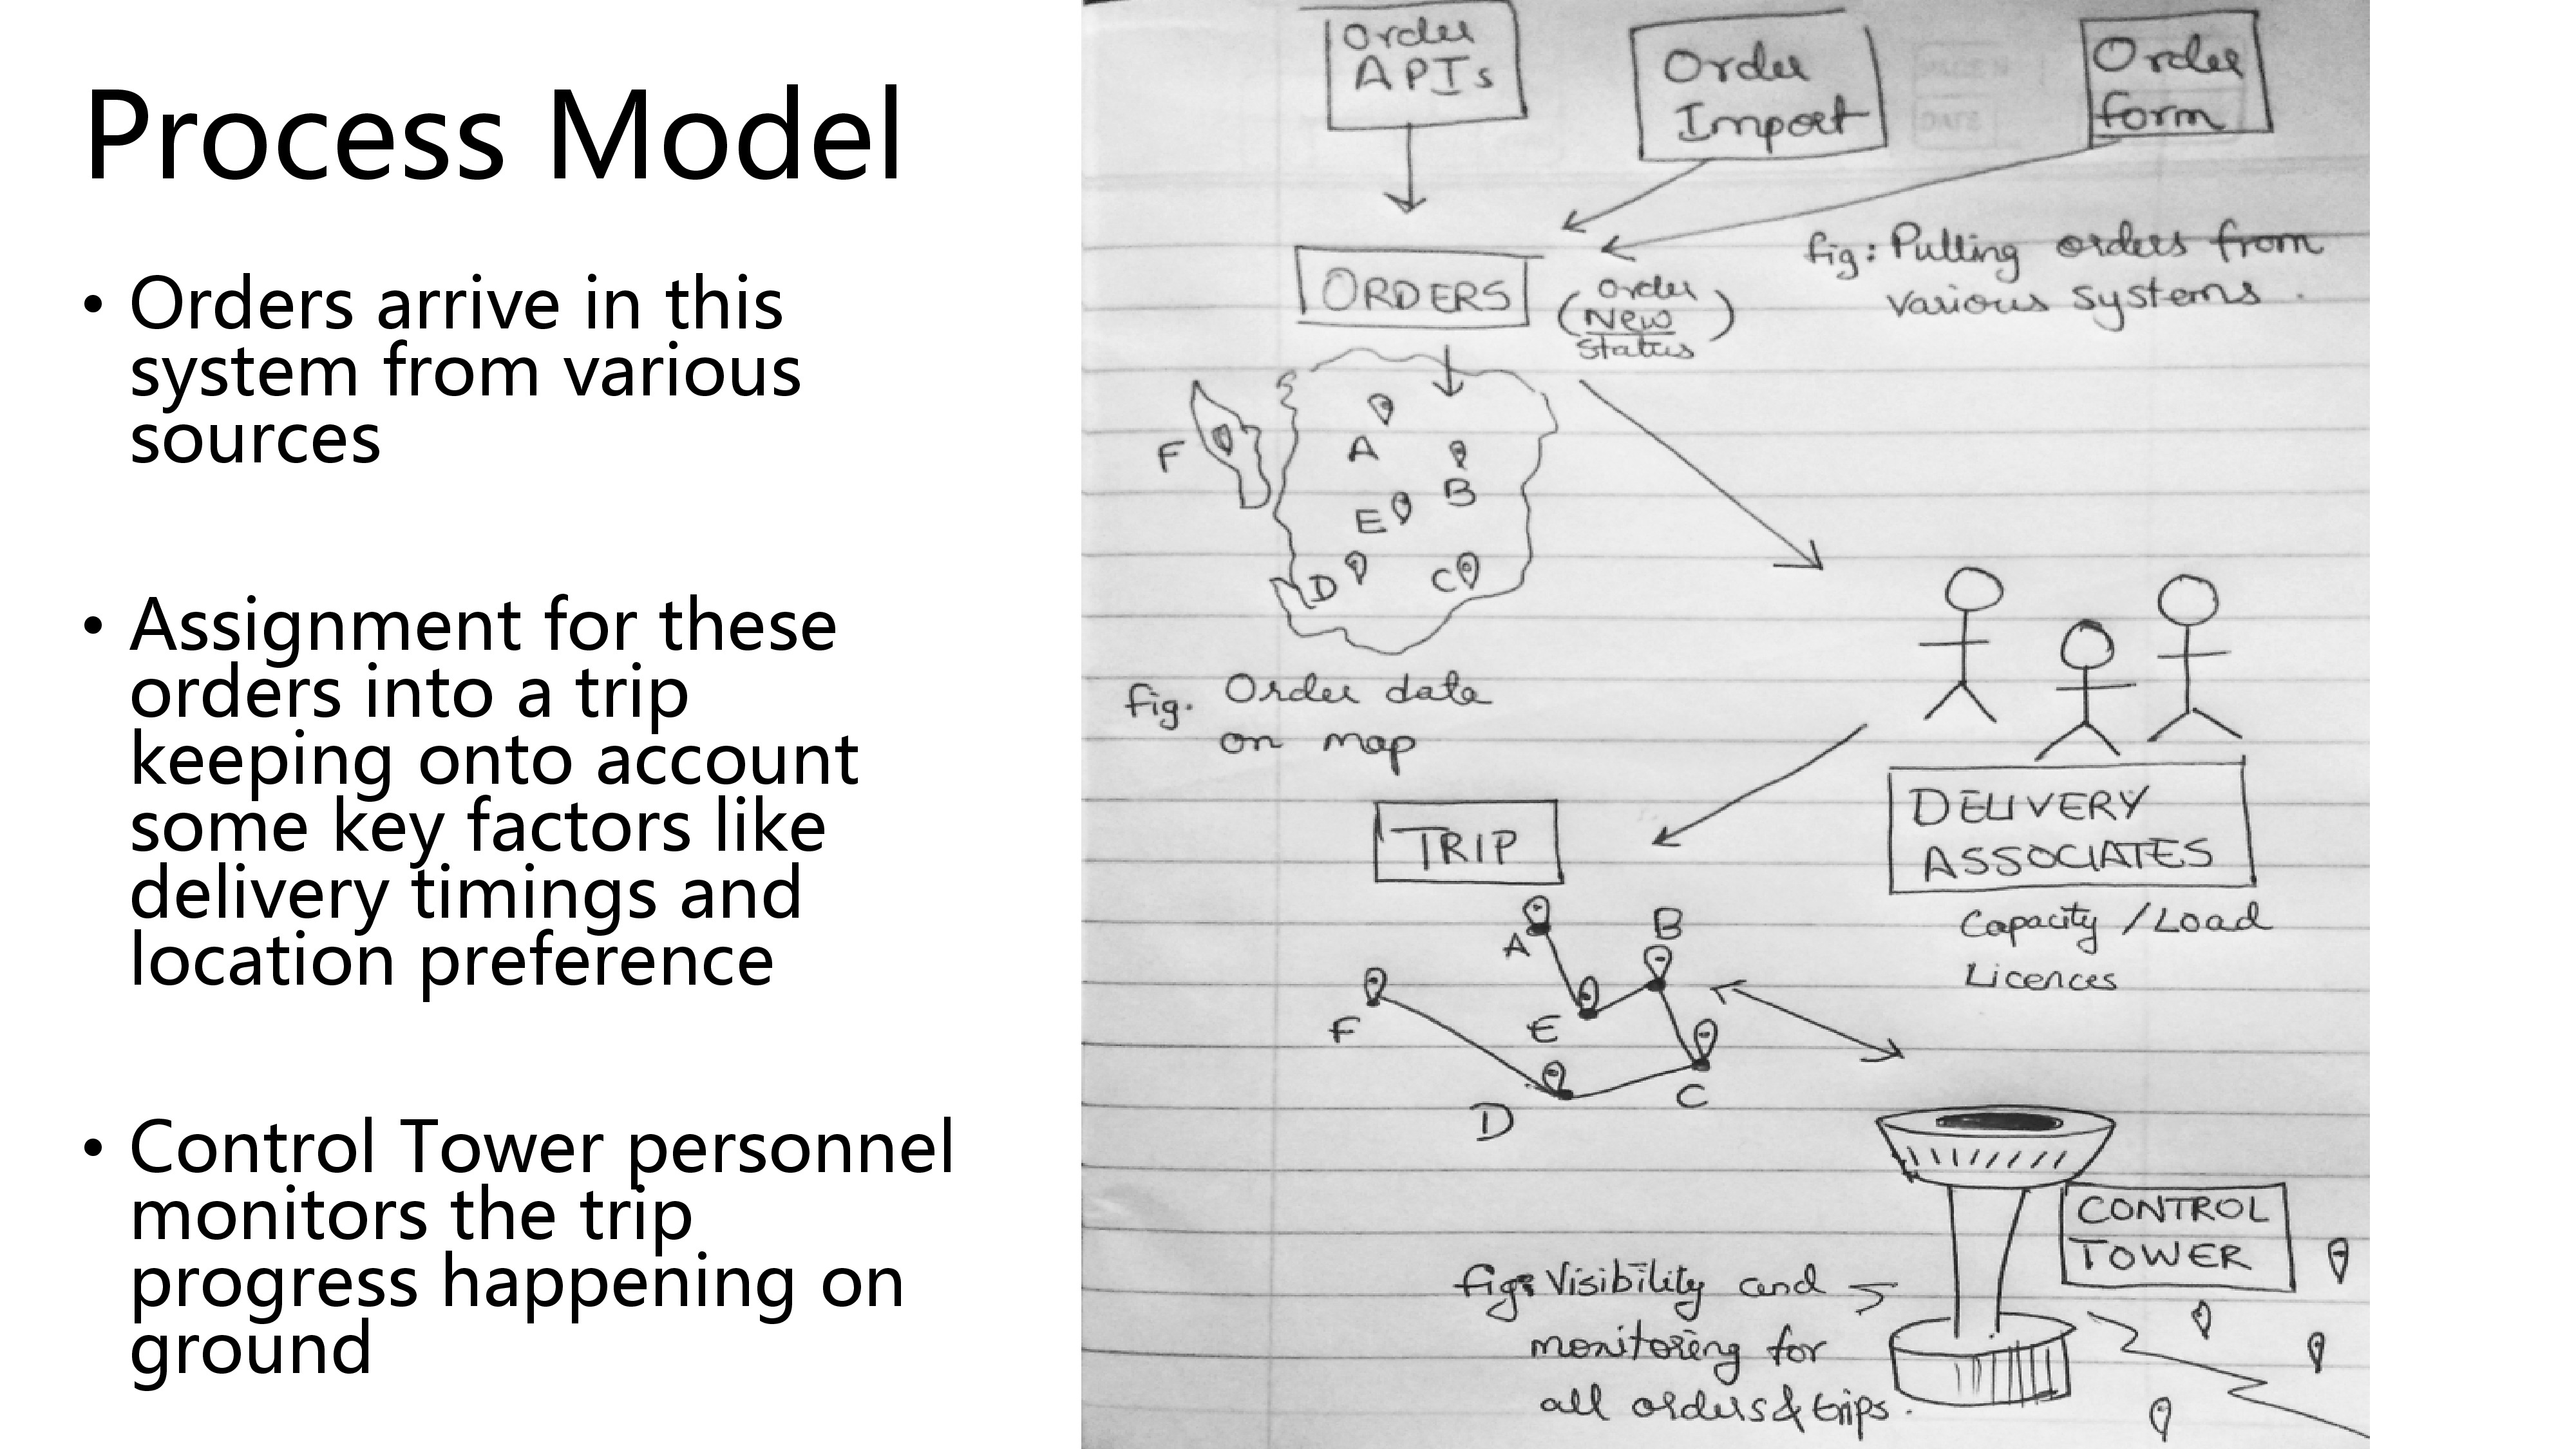 Process Model
• Orders arrive in this
system from various
sources
• Assignment for these
orders into a trip
keeping onto account
some key factors like
delivery timings and
location preference
• Control Tower personnel
monitors the trip
progress happening on
ground
Order
APIs
Order
Import
Order
form
fig: Pulling orders from
various systems.
ORDERS
(Order
New
Status)
F
A
B
E
D
C
fig. Order data
on map
DELIVERY
ASSOCIATES
Capacity / Load
Licences
TRIP
A
B
F
E
C
D
CONTROL
TOWER
fig: Visibility and
monitoring for
all orders & trips.